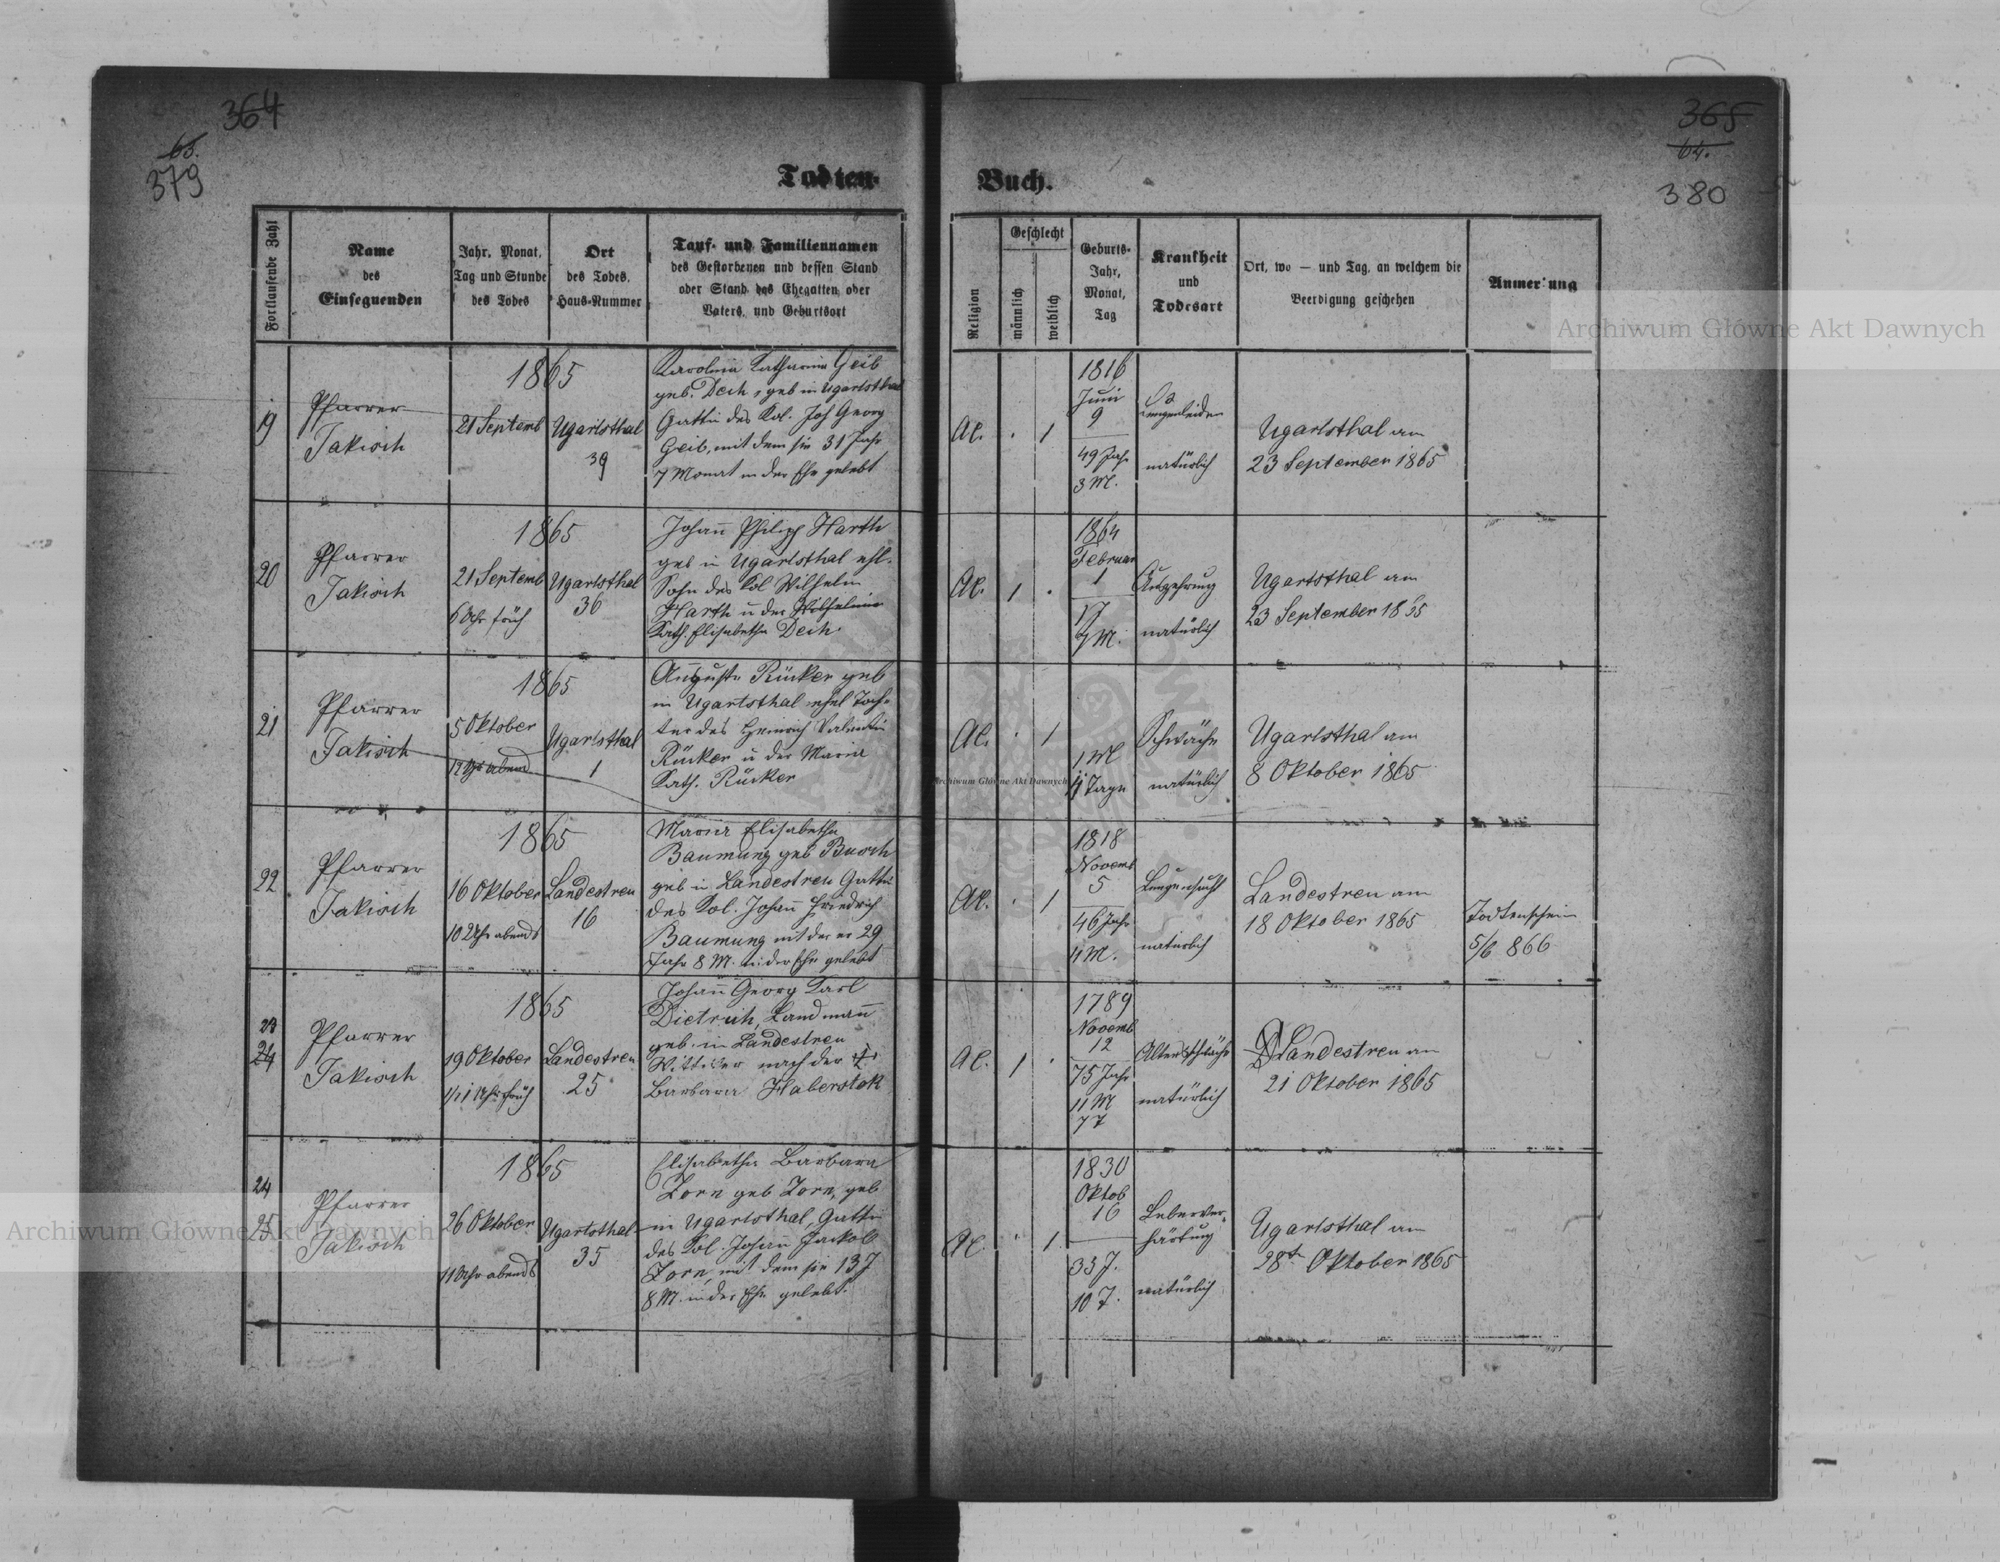 364
65.
379
Todten-
Buch.
365
64.
380
Fortlaufende Zahl
Name
des
Einsegnenden
Jahr, Monat,
Tag und Stunde
des Todes
Ort
des Todes,
Haus-Nummer
Tauf- und Familiennamen
des Gestorbenen und dessen Stand
oder Stand des Ehegatten oder
Vaters, und Geburtsort
Religion
Geschlecht
männlich
weiblich
Geburts-
Jahr,
Monat,
Tag
Krankheit
und
Todesart
Ort, wo — und Tag, an welchem die
Beerdigung geschehen
Anmerkung
Archiwum Główne Akt Dawnych
19
Pfarrer
Jakisch
1865
21 Septemb
Ugartsthal
39
Karolina Katharina Geib
geb. Dech, geb in Ugartsthal
Gattin des Kol. Joh Georg
Geib, mit dem sie 31 Jahr
7 Monat in der Ehe gelebt
1
1816
Juni
9
49 Jahr
3 M.
Lungenleiden
natürlich
Ugartsthal am
23 September 1865
20
Pfarrer
Jakisch
1865
21 Septemb
6 Uhr früh
Ugartsthal
36
Johann Philipp Harth
geb in Ugartsthal ehl.
Sohn des Kol Wilhelm
Harth u der Wilhelmine
Kath. Elisabetha Dech
1
1864
Februar
1
1J
7 M.
Auszehrung
natürlich
Ugartsthal am
23 September 1865
21
Pfarrer
Jakisch
1865
5 Oktober
12 Uhr abend
Ugartsthal
1
Auguste Rücker geb
in Ugartsthal ehel Toch-
ter des Heinrich Valentin
Rücker u der Maria
Kath. Rücker
Archiwum Główne Akt Dawnych
1
1 M
4 Tage
Schwäche
natürlich
Ugartsthal am
8 Oktober 1865
22
Pfarrer
Jakisch
1865
16 Oktober
10 Uhr abends
Landestreu
16
Maria Elisabetha
Baumung geb Busch
geb in Landestreu Gattin
des Kol. Johann Friedrich
Baumung mit der er 29
Jahr 8 M. in der Ehe gelebt
1
1818
Novemb
5
46 Jahr
11 M.
Lungensucht
natürlich
Landestreu am
18 Oktober 1865
Todtenschein
5/6 866
23
24
Pfarrer
Jakisch
1865
19 Oktober
Landestreu
25
Johann Georg Karl
Dietrich, Landmann
geb. in Landestreu
Wittwer nach der †
Barbara Haberstok
1
1789
Novemb
12
75 Jahr
11 M
7 T
Altersschwäche
natürlich
Landestreu am
21 Oktober 1865
24
25
Pfarrer
Jakisch
1865
26 Oktober
11 Uhr abends
Ugartsthal
35
Elisabetha Barbara
Zorn geb Zorn, geb
in Ugartsthal, Gattin
des Kol. Johann Jackob
Zorn, mit dem sie 13 J
8 M. in der Ehe gelebt.
1
1830
Oktob
16
35 J.
10 T.
Leberver-
härtung
natürlich
Ugartsthal am
28t Oktober 1865
Archiwum Główne Akt Dawnych